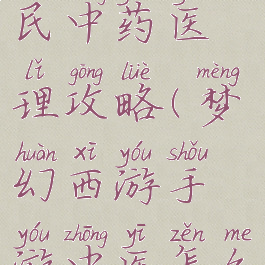 民中药医
lǐ gōng lüè mèng
理攻略(梦
huàn xī yóu shǒu
幻西游手
yóu zhōng yī zěn me
游中医怎么